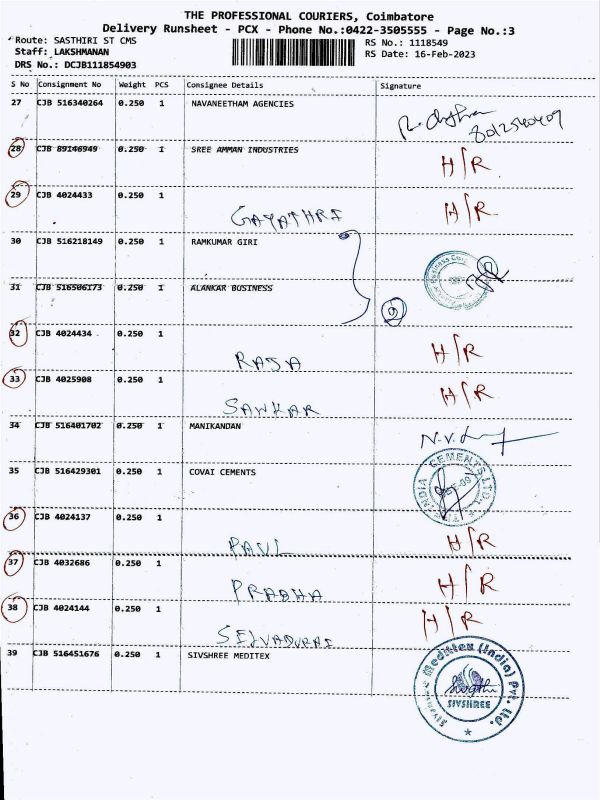 THE PROFESSIONAL COURIERS, Coimbatore
Delivery Runsheet - PCX - Phone No.:0422-3505555 - Page No.:3
Route: SASTHIRI ST CMS
RS No.: 1118549
Staff: LAKSHMANAN
RS Date: 16-Feb-2023
DRS No.: DCJB111854903
S No Consignment No Weight PCS Consignee Details Signature
27 CJB 516340264 0.250 1 NAVANEETHAM AGENCIES
28 CJB 89146949 0.250 1 SREE AMMAN INDUSTRIES H/R
29 CJB 4024433 0.250 1 GAYATHRI H/R
30 CJB 516218149 0.250 1 RAMKUMAR GIRI
31 CJB 516506173 0.250 1 ALANKAR BUSINESS 2
32 CJB 4024434 0.250 1 RAJA H/R
33 CJB 4025908 0.250 1 SANKAR H/R
34 CJB 516401702 0.250 1 MANIKANDAN
35 CJB 516429301 0.250 1 COVAI CEMENTS
36 CJB 4024137 0.250 1 PAUL H/R
37 CJB 4032686 0.250 1 PRABHA H/R
38 CJB 4024144 0.250 1 SELVADURAI H/R
39 CJB 516451676 0.250 1 SIVSHREE MEDITEX
Sivshree Meditex (India) Pvt. Ltd.
SIVSHREE